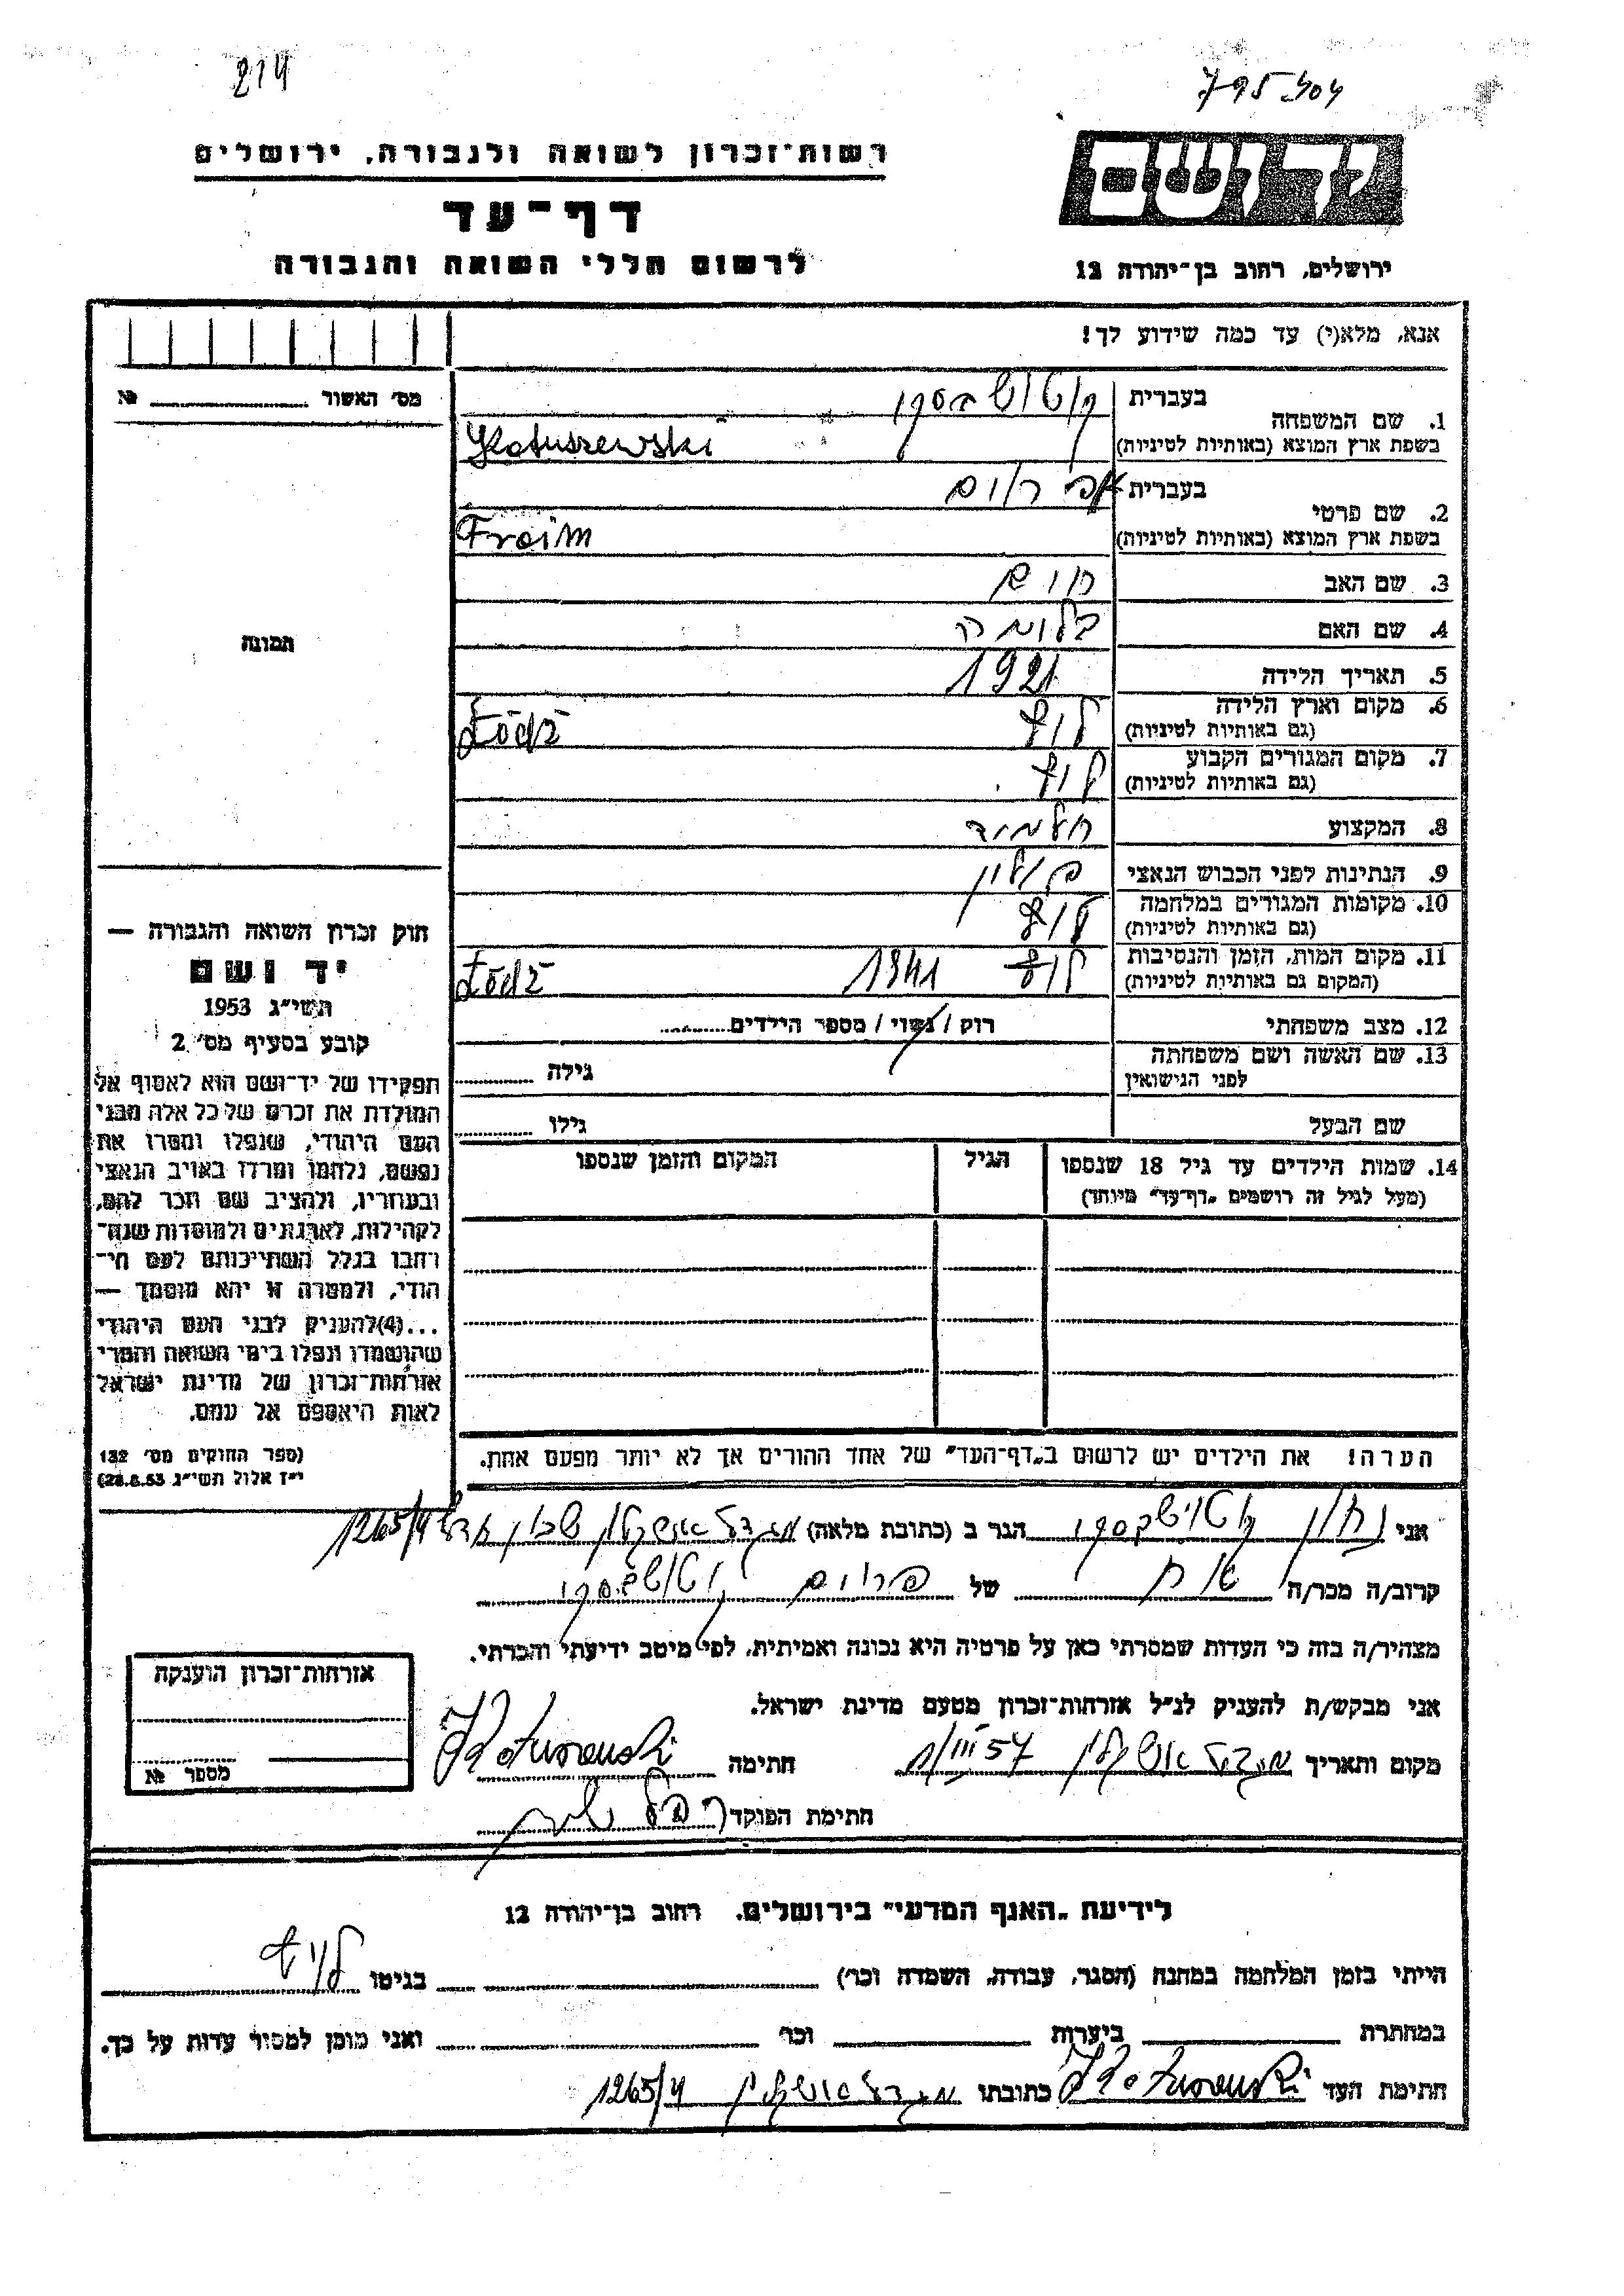 214
רשות־זכרון לשואה ולגבורה, ירושלים
דף־עד
לרשום חללי השואה והגבורה
יד ושם
ירושלים, רחוב בן־יהודה 12
אנא, מלא(י) עד כמה שידוע לך!
מס׳ האשור № 
1. שם המשפחה
בעברית
בשפת ארץ המוצא (באותיות לטיניות)
2. שם פרטי
בעברית אפרים
בשפת ארץ המוצא (באותיות לטיניות) Froim
3. שם האב חיים
4. שם האם בלומה
5. תאריך הלידה 1921
6. מקום וארץ הלידה לודז Łódź
(גם באותיות לטיניות)
7. מקום המגורים הקבוע לודז
(גם באותיות לטיניות)
8. המקצוע תלמיד
9. הנתינות לפני הכבוש הנאצי פולין
10. מקומות המגורים במלחמה לודז
(גם באותיות לטיניות)
11. מקום המות, הזמן והנסיבות לודז 1941 Łódź
(המקום גם באותיות לטיניות)
12. מצב משפחתי רוק / נשוי / מספר הילדים
13. שם האשה ושם משפחתה גילה
לפני הנישואין
שם הבעל גילו
14. שמות הילדים עד גיל 18 שנספו הגיל המקום והזמן שנספו
(מעל לגיל זה רושמים „דף־עד״ מיוחד)
הערה! את הילדים יש לרשום ב„דף־העד״ של אחד ההורים אך לא יותר מפעם אחת.
תמונה
חוק זכרון השואה והגבורה —
יד ושם
תשי״ג 1953
קובע בסעיף מס׳ 2
תפקידו של יד־ושם הוא לאסוף אל
המולדת את זכרם של כל אלה מבני
העם היהודי, שנפלו ומסרו את
נפשם, נלחמו ומרדו באויב הנאצי
ובעוזריו, ולהציב שם וזכר להם,
לקהילות, לארגונים ולמוסדות שנח־
רבו בגלל השתייכותם לעם הי־
הודי, ולמטרה זו יהא מוסמך —
...(4)להעניק לבני העם היהודי
שהושמדו ונפלו בימי השואה והמרי
אזרחות־זכרון של מדינת ישראל
לאות היאספם אל עמם.
(ספר החוקים מס׳ 132
י״ז אלול תשי״ג 28.8.53)
אני הגר ב (כתובת מלאה) מגדל אשקלון שכון 1265/4
קרוב/ה מכר/ה אח של פרוים
מצהיר/ה בזה כי העדות שמסרתי כאן על פרטיה היא נכונה ואמיתית, לפי מיטב ידיעתי והכרתי.
אני מבקש/ת להעניק לנ״ל אזרחות־זכרון מטעם מדינת ישראל.
מקום ותאריך מגדל אשקלון חתימה
חתימת הפוקד
אזרחות־זכרון הוענקה
מספר №
לידיעת „האגף המדעי״ בירושלים. רחוב בן־יהודה 12
הייתי בזמן המלחמה במחנה (הסגר, עבודה, השמדה וכר׳) בגיטו לודז
במחתרת ביערות וכר׳ ואני מוכן למסור עדות על כך.
חתימת העד כתובתו מגדל אשקלון 1265/4